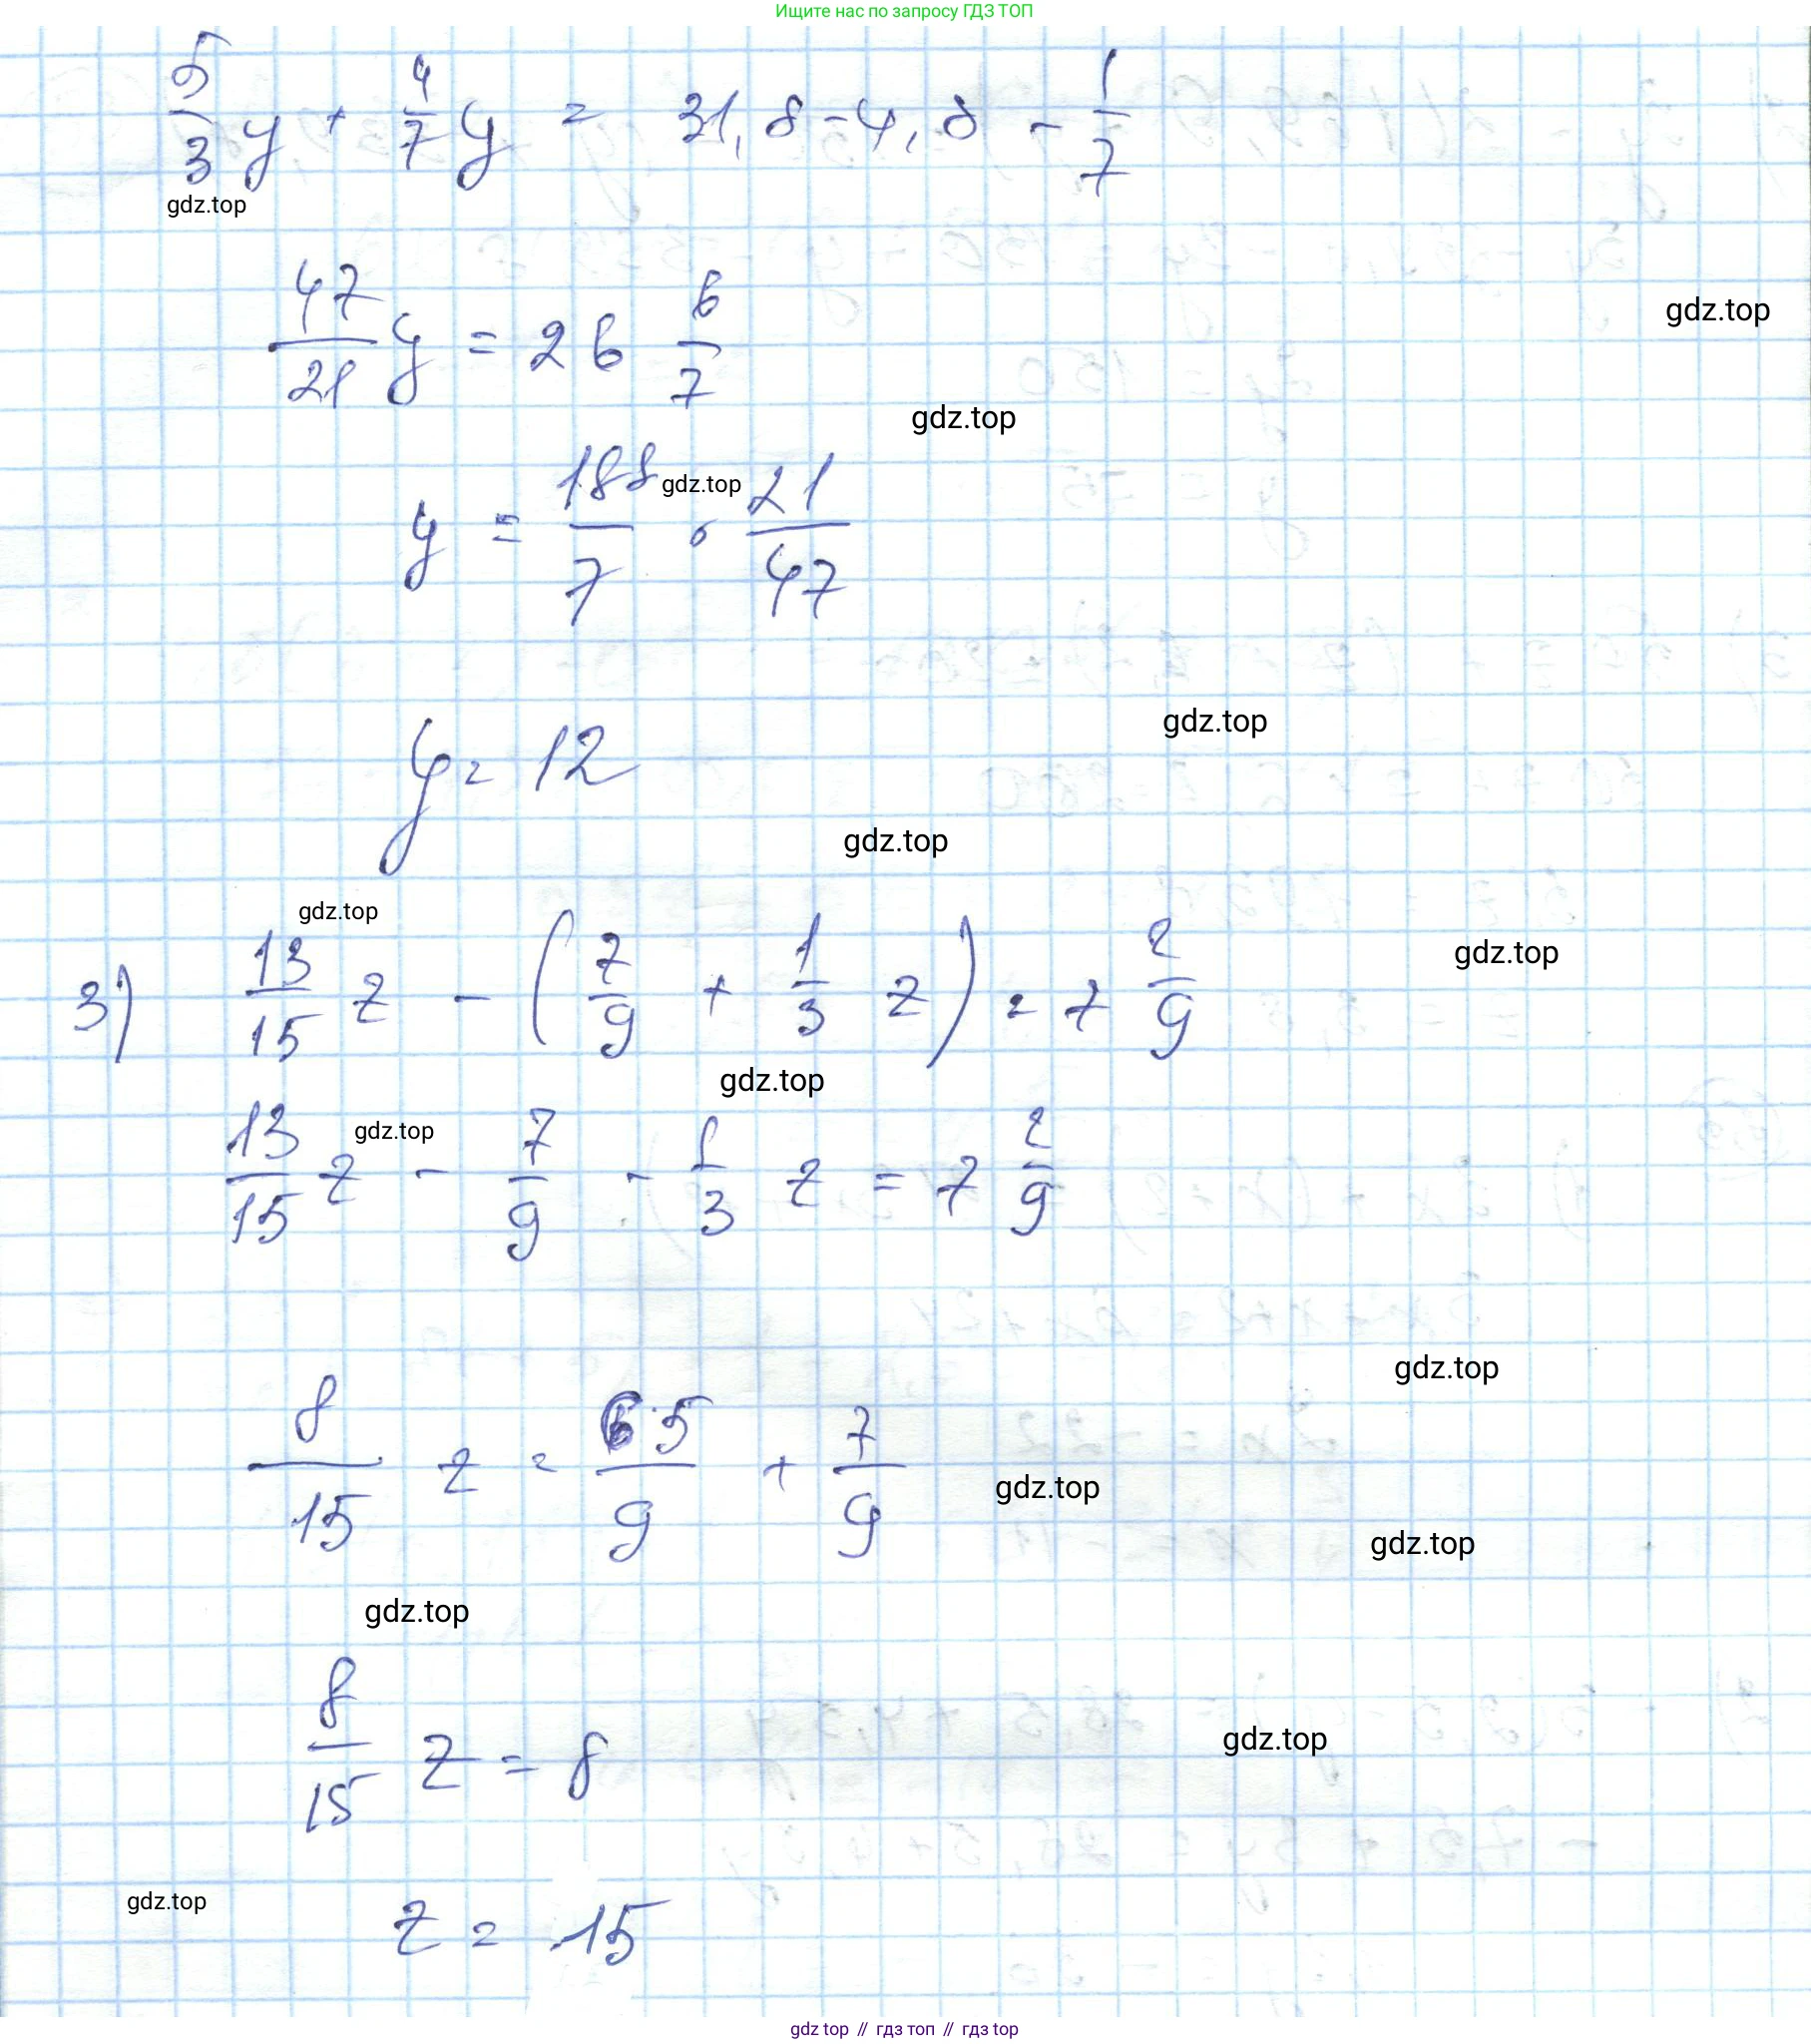 Ищите нас по запросу ГДЗ ТОП
5/3 y + 4/7 y = 31,8 - 4,8 - 1/7
gdz.top
47/21 y = 26 6/7
gdz.top
gdz.top
y = 188/7 · 21/47
gdz.top
y = 12
gdz.top
gdz.top
gdz.top
3) 13/15 z - (7/9 + 1/3 z) = 7 2/9
gdz.top
gdz.top
13/15 z - 7/9 - 1/3 z = 7 2/9
gdz.top
gdz.top
8/15 z = 65/9 + 7/9
gdz.top
gdz.top
gdz.top
8/15 z = 8
gdz.top
gdz.top
z = 15
gdz.top // гдз топ // гдз top